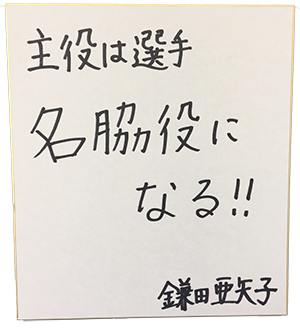 主役は選手
名脇役に
なる!!
鎌田亜矢子